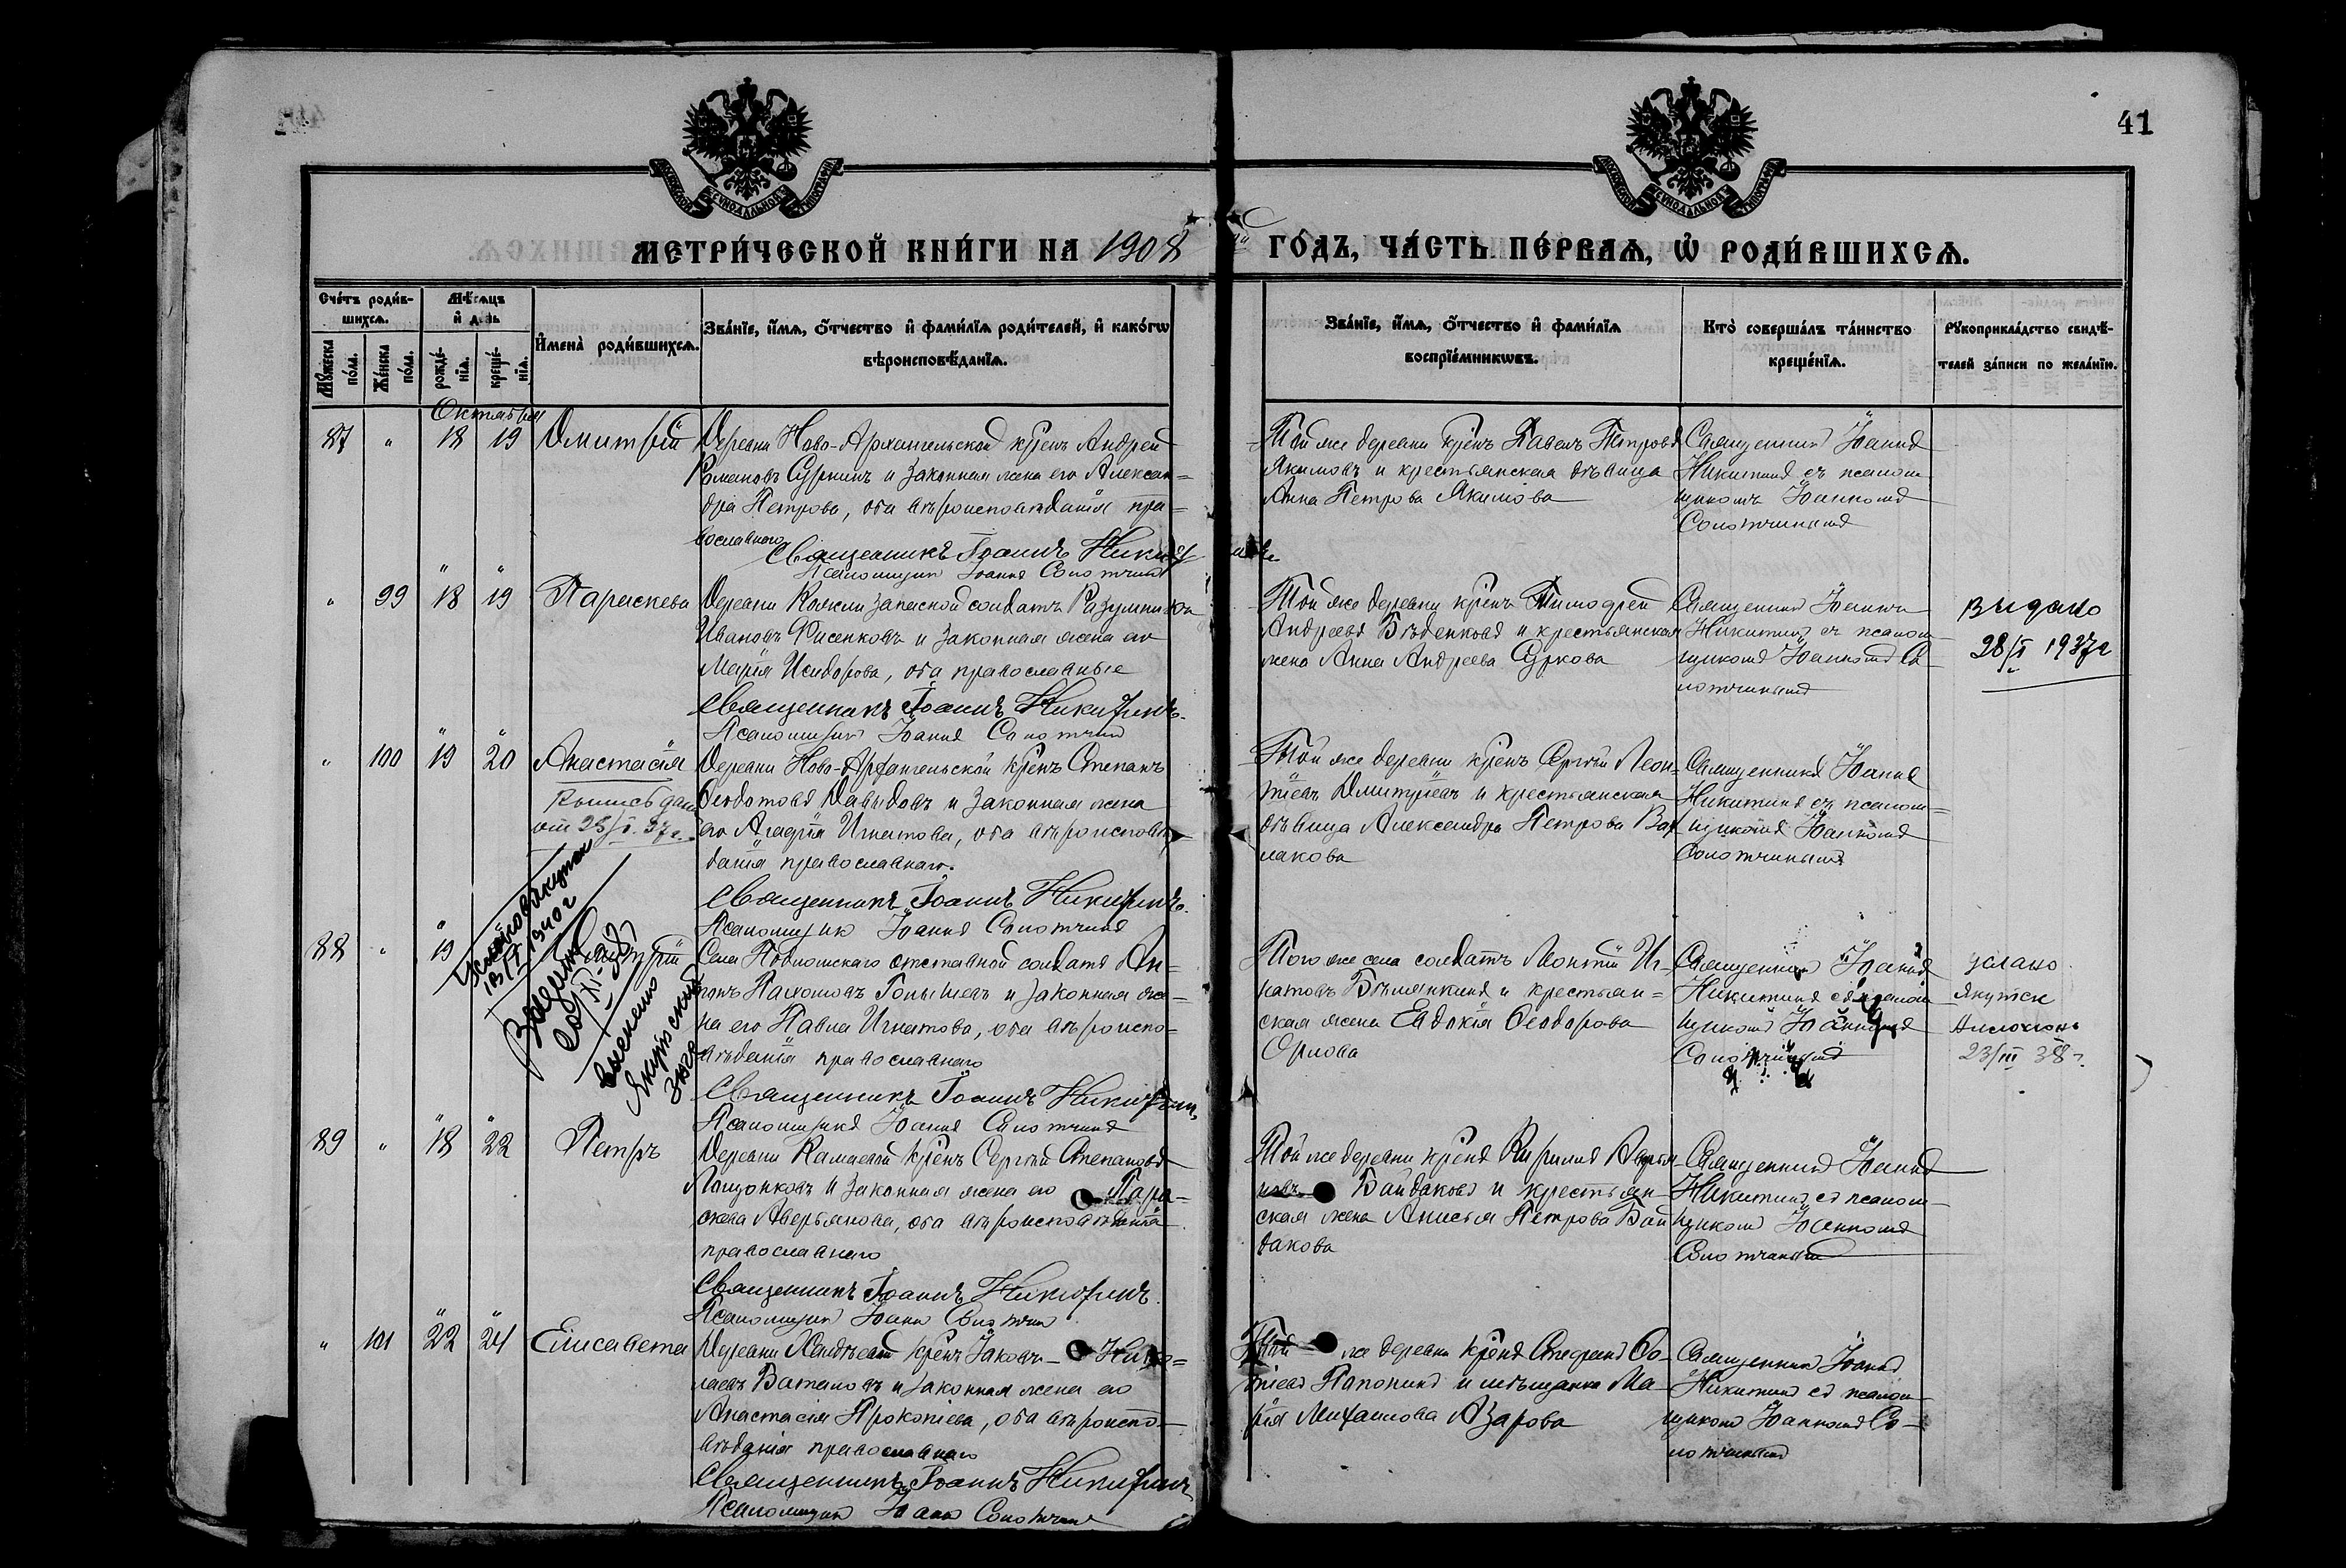 41
МЕТРИ́ЧЕСКОЙ КНИ́ГИ НА 1908
ГО́ДЪ, ЧА́СТЬ ПЕ́РВАѦ, Ѡ҆ РОДИ́ВШИХСѦ.
Сче́тъ роди́в-
шихсѧ.
Мѣ́сѧцъ
и҆ день
Мꙋ́жеска по́ла.
Же́нска по́ла.
рожде́-нїѧ.
креще́-нїѧ.
И҆мена̀ роди́вшихсѧ.
Зва́нїе, и҆́мѧ, ѻ҆́тчество и҆ фами́лїѧ роди́телей, и҆ како́гѡ
вѣроисповѣ́данїѧ.
Зва́нїе, и҆́мѧ, ѻ҆́тчество и҆ фами́лїѧ
воспрїе́мникѡвъ.
Кто̀ соверша́лъ та́инство
креще́нїѧ.
Рꙋкоприкла́дство свидѣ́-
телей за́писи по жела́нїю.
Октября
87 " 18 19 Дмитрій
Деревни Ново-Архангельской кр̃нъ Андрей
Романовъ Суркинъ и законная жена его Алексан=
дра Петрова, оба вѣроисповѣданія пра=
вославнаго
Священникъ Іоаннъ Никитинъ
Псаломщикъ Іоаннъ Солотчинъ
Той же деревни кр̃нъ Павелъ Петровъ
Якимовъ и крестьянская дѣвица
Анна Петрова Якимова
Священникъ Іоаннъ
Никитинъ съ псалом
щикомъ Іоанномъ
Солотчинымъ
" 99 18 19 Параскева
Деревни запасной солдатъ
Ивановъ Фисенковъ и законная жена его
Марія Исидорова, оба православные
Священникъ Іоаннъ Никитинъ.
Псаломщикъ Іоаннъ Солотчинъ
Той же деревни кр̃нъ Тимофей
Андреевъ Бѣденковъ и крестьянская
жена Анна Андреева Суркова
Священникъ Іоаннъ
Никитинъ съ псалом
щикомъ Іоанномъ Со
лотчинымъ
выдано
28/I 1937г
" 100 19 20 Анастасія
Выпись дана
от 25/I. 37г.
Деревни Ново-Архангельской кр̃нъ Степанъ
Ѳеодотовъ Давыдовъ и законная жена
его Агафія Игнатова, оба вѣроисповѣ=
данія православнаго.
Священникъ Іоаннъ Никитинъ.
Псаломщикъ Іоаннъ Солотчинъ
Той же деревни кр̃нъ Сергѣй Леон=
тіевъ Дмитріевъ и крестьянская
дѣвица Александра Петрова Вар
лакова
Священникъ Іоаннъ
Никитинъ съ псалом=
щикомъ Іоанномъ
Солотчинымъ
88 " 19
1940г
выслано
Якутский
Села отставной солдатъ Ан=
Пахомовъ и законная же=
на его Павла Игнатова, оба вѣроиспо=
вѣданія православнаго
Священникъ Іоаннъ Никитинъ,
Псаломщикъ Іоаннъ Солотчинъ
Того же села солдатъ Леонтій Иг=
натовъ Бѣлянкинъ и крестьян=
ская жена Евдокія Ѳеодорова
Орлова
Священникъ Іоаннъ
Никитинъ съ псалом
щикомъ Іоанномъ
Солотчинымъ
услано
Якутск
23/III 38г.
89 " 18 22 Петръ
Деревни кр̃нъ Сергѣй Степановъ
Лощонковъ и законная жена его Пара=
скева Аверьянова, оба вѣроисповѣданія
православнаго
Священникъ Іоаннъ Никитинъ.
Псаломщикъ Іоаннъ Солотчинъ
Той же деревни кр̃нъ Кириллъ Аверья
новъ Байдаковъ и крестьян=
ская жена Анисья Петрова Бай
дакова
Священникъ Іоаннъ
Никитинъ съ псалом=
щикомъ Іоанномъ
Солотчинымъ
" 101 22 24 Елисавета
Деревни кр̃нъ Іаковъ Нико=
лаевъ Ваталовъ и законная жена его
Анастасія Прокопіева, оба вѣроиспо=
вѣданія православнаго
Священникъ Іоаннъ Никитинъ
Псаломщикъ Іоаннъ Солотчинъ
Той же деревни кр̃нъ Стефанъ Со=
Папонинъ и мѣщанка Ма=
рія Михаилова Азарова
Священникъ Іоаннъ
Никитинъ съ псалом
щикомъ Іоанномъ Со=
лотчинымъ